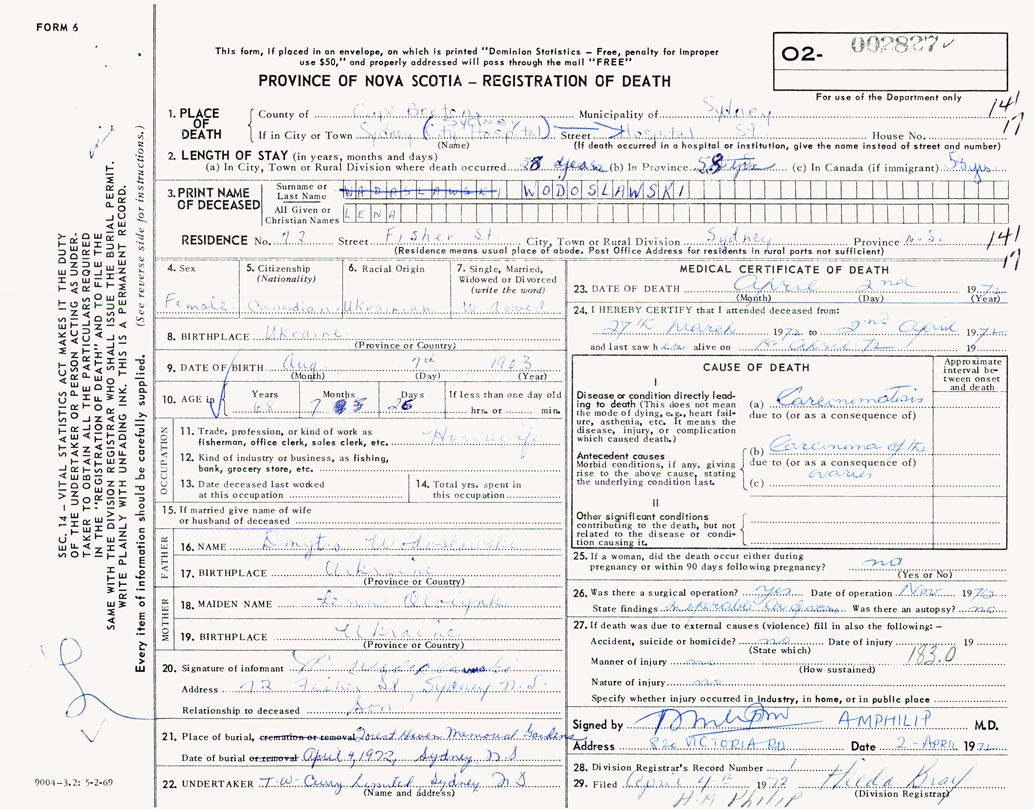 FORM 6
This form, if placed in an envelope, on which is printed "Dominion Statistics – Free, penalty for improper
use $50," and properly addressed will pass through the mail "FREE"
O2- 002827
PROVINCE OF NOVA SCOTIA – REGISTRATION OF DEATH
For use of the Department only
141
17
1. PLACE OF DEATH
County of Cape Breton Municipality of Sydney
If in City or Town Sydney (City Hospital) SYDNEY Street Hospital St House No.
(Name) (If death occurred in a hospital or institution, give the name instead of street and number)
2. LENGTH OF STAY (in years, months and days)
(a) In City, Town or Rural Division where death occurred years (b) In Province 58 yrs (c) In Canada (if immigrant) 58 yrs
3. PRINT NAME OF DECEASED
Surname or Last Name WADASLAWSKI WODOSLAWSKI
All Given or Christian Names LENA
RESIDENCE No. 72 Street Fisher St City, Town or Rural Division Sydney Province N.S.
(Residence means usual place of abode. Post Office Address for residents in rural parts not sufficient)
141
17
4. Sex
Female
5. Citizenship (Nationality)
Canadian
6. Racial Origin
Ukrainian
7. Single, Married, Widowed or Divorced (write the word)
Widowed
8. BIRTHPLACE Ukraine
(Province or Country)
9. DATE OF BIRTH Aug 7th 1903
(Month) (Day) (Year)
10. AGE in Years 68 Months 7 Days 26 If less than one day old
hrs. or min.
OCCUPATION
11. Trade, profession, or kind of work as
fisherman, office clerk, sales clerk, etc. Housewife
12. Kind of industry or business, as fishing,
bank, grocery store, etc.
13. Date deceased last worked
at this occupation
14. Total yrs. spent in
this occupation
15. If married give name of wife
or husband of deceased
FATHER
16. NAME Dmytro Wodoslawski
17. BIRTHPLACE Ukraine
(Province or Country)
MOTHER
18. MAIDEN NAME
19. BIRTHPLACE Ukraine
(Province or Country)
20. Signature of informant
Address 72 Fisher St, Sydney N.S.
Relationship to deceased Son
21. Place of burial, cremation or removal Forest Haven Memorial Gardens
Date of burial or removal April 4, 1972, Sydney, N.S
22. UNDERTAKER T.W. Curry Limited, Sydney, N.S
(Name and address)
MEDICAL CERTIFICATE OF DEATH
23. DATE OF DEATH April 2nd 1972
(Month) (Day) (Year)
24. I HEREBY CERTIFY that I attended deceased from:
27th March 1972 to 2nd April 1972
and last saw her alive on 1st April 72 19
CAUSE OF DEATH
Approximate interval between onset and death
I
Disease or condition directly leading to death (This does not mean the mode of dying, e.g., heart failure, asthenia, etc. It means the disease, injury, or complication which caused death.)
(a) Carcinomatosis
due to (or as a consequence of)
Antecedent causes
Morbid conditions, if any, giving rise to the above cause, stating the underlying condition last.
(b) Carcinoma of the
due to (or as a consequence of)
ovaries
(c)
II
Other significant conditions contributing to the death, but not related to the disease or condition causing it.
25. If a woman, did the death occur either during
pregnancy or within 90 days following pregnancy? no
(Yes or No)
26. Was there a surgical operation? yes Date of operation Nov 19
State findings Was there an autopsy? no
27. If death was due to external causes (violence) fill in also the following: –
Accident, suicide or homicide? no Date of injury 19
(State which)
183.0
Manner of injury no
(How sustained)
Nature of injury no
Specify whether injury occurred in industry, in home, or in public place
Signed by AMPHILIP M.D.
Address 820 VICTORIA RD Date 2-APRIL 1972
28. Division Registrar's Record Number 1
29. Filed April 4th 1972 Hilda Kray
(Division Registrar)
H.M. Philip
SEC. 14 – VITAL STATISTICS ACT MAKES IT THE DUTY
OF THE UNDERTAKER OR PERSON ACTING AS UNDER-
TAKER TO OBTAIN ALL THE PARTICULARS REQUIRED
IN THE "REGISTRATION OF DEATH" AND TO FILE THE
SAME WITH THE DIVISION REGISTRAR WHO SHALL ISSUE THE BURIAL PERMIT.
WRITE PLAINLY WITH UNFADING INK. THIS IS A PERMANENT RECORD.
Every item of information should be carefully supplied. (See reverse side for instructions.)
9004-3.2: 5-2-69